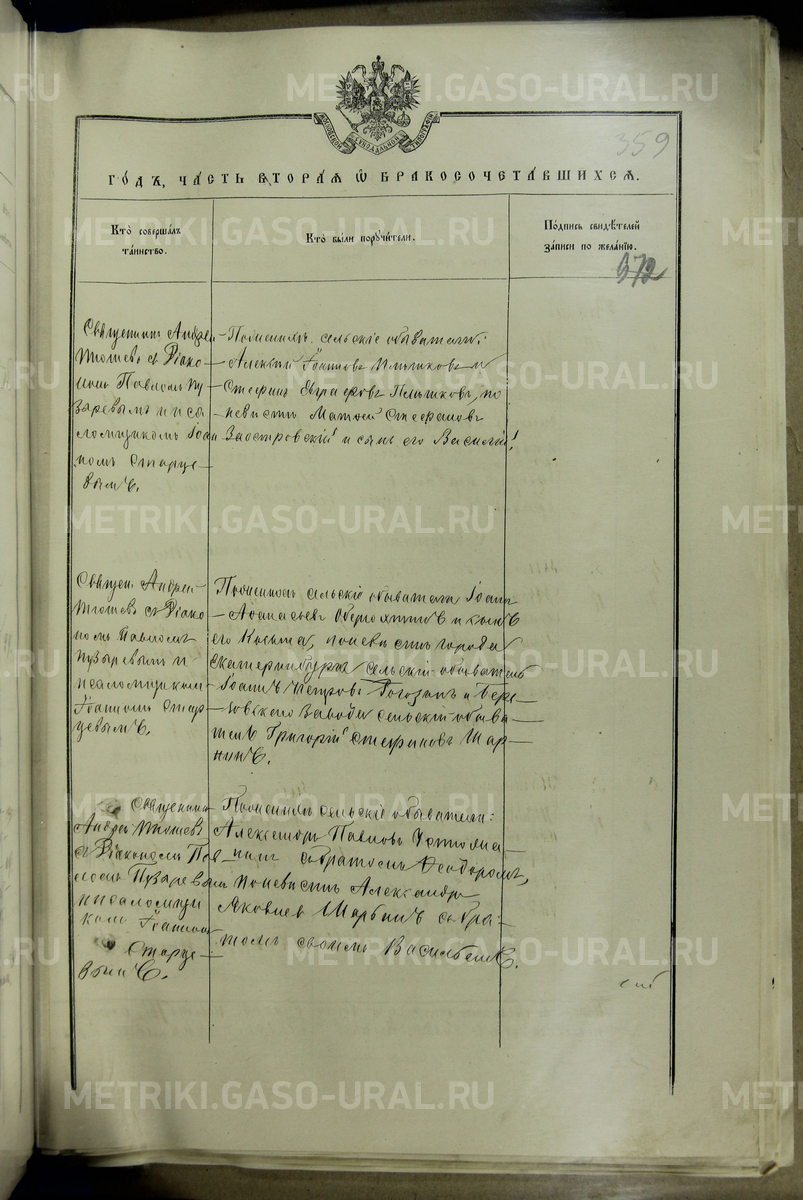 359
ГОДЪ, ЧАСТЬ ВТОРАЯ Ѡ БРАКОСОЧЕТАВШИХСЯ.
Кто совершалъ таинство.
Кто были поручители.
Подпись свидѣтелей записи по желанію.
372
Священникъ Андрей
Тютевъ съ Діако
номъ Павломъ Пу
заревымъ и пса
ломщикомъ Іоан
номъ Старце
вымъ.
По женихѣ сельскіе обыватели:
Алексѣй Іоанновъ и
Стефанъ по
невѣстѣ Стефановъ
Заостровскій и сынъ его Василій.
Священ. Андрей
Тютевъ съ Діако
номъ Павломъ
Пузыревымъ и
псаломщикомъ
Іоанномъ Стар
цевымъ.
По женихѣ сельскій обыватель Іоаннъ
Аѳанасьевъ и сынъ
его Косьма, по невѣстѣ города
Екатеринбурга сельскій обыватель
Іоаннъ Петровъ и Бере
зовскаго завода сельскій обыва
тель Григорій Стефановъ
Священникъ
Андрей Тютевъ
съ Діакономъ Пав
ломъ Пузаревымъ
псаломщи
комъ Іоанномъ
Старце
вымъ.
По женихѣ сельскіе обыватели:
Александръ Павловъ
съ братомъ Ѳеодоромъ,
по невѣстѣ Александръ
Яковлевъ съ бра
томъ своимъ Васильемъ.
METRIKI.GASO-URAL.RU